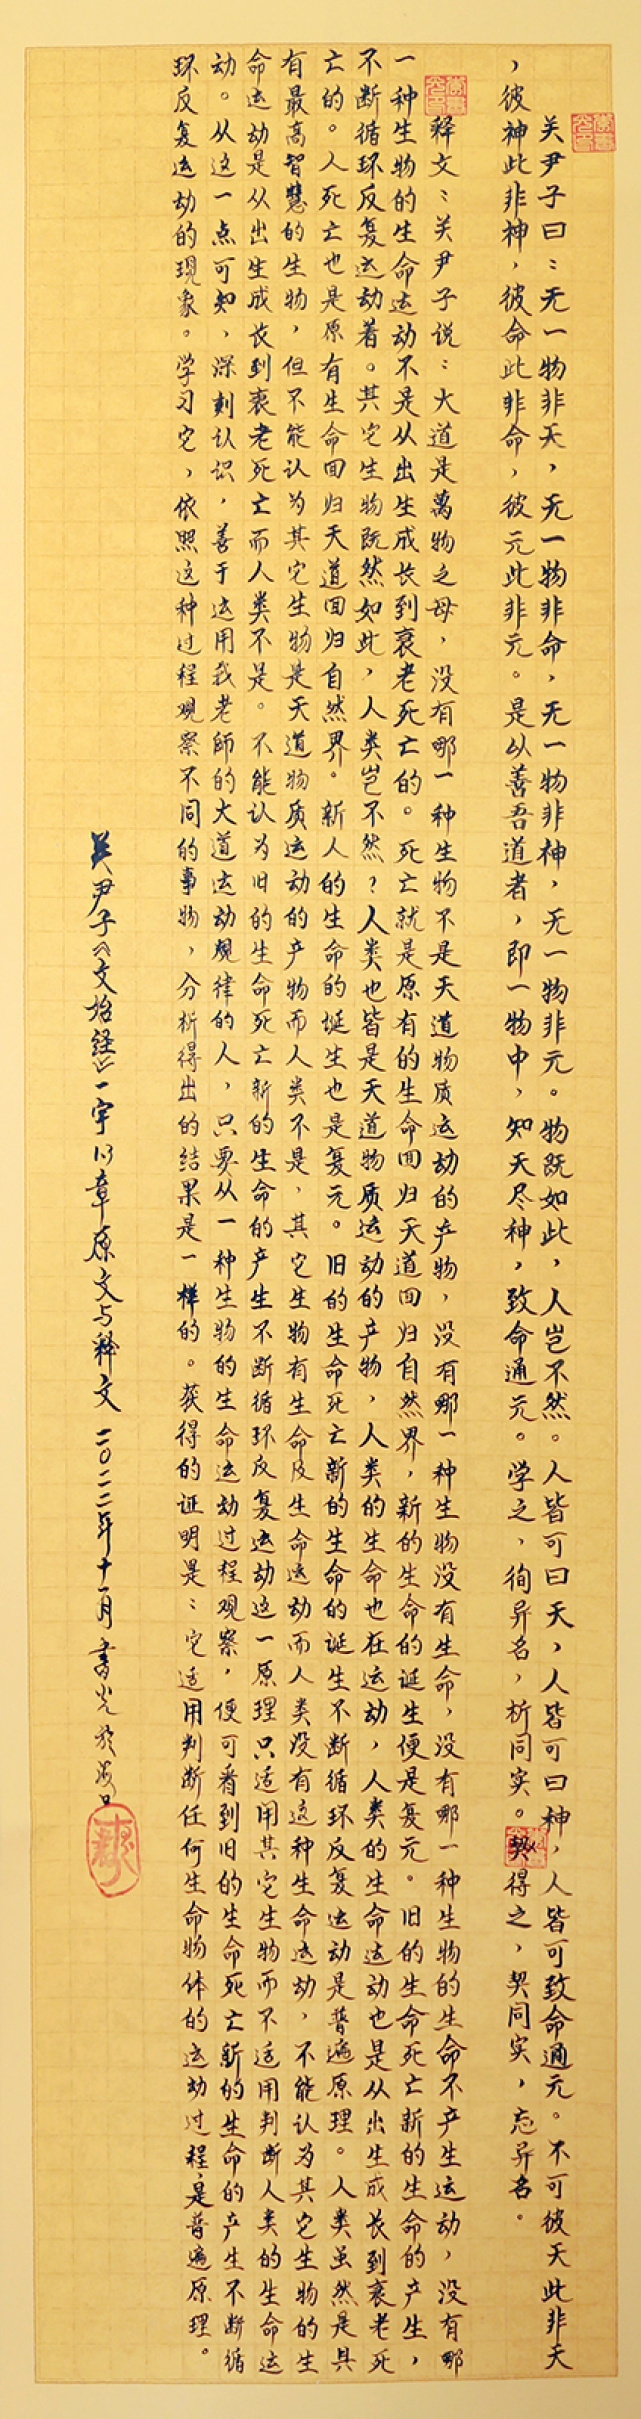 关尹子曰：无一物非天，无一物非命，无一物非神，无一物非元。物既如此，人岂不然。人皆可曰天，人皆可曰神，人皆可致命通元。不可彼天此非天
，彼神此非神，彼命此非命，彼元此非元。是以善吾道者，即一物中，知天尽神，致命通元。学之，徇异名，析同实。契得之，契同实，忘异名。
释文：关尹子说：大道是萬物之母，没有哪一种生物不是天道物质运动的产物，没有哪一种生物没有生命，没有哪一种生物的生命不产生运动，没有哪
一种生物的生命运动不是从出生成长到衰老死亡的。死亡就是原有的生命回归天道回归自然界，新的生命的诞生便是复元。旧的生命死亡新的生命的产生，
不断循环反复运动着。其它生物既然如此，人类岂不然？人类也皆是天道物质运动的产物，人类的生命也在运动，人类的生命运动也是从出生成长到衰老死
亡的。人死亡也是原有生命回归天道回归自然界。新人的生命的诞生也是复元。旧的生命死亡新的生命的诞生不断循环反复运动是普遍原理。人类虽然是具
有最高智慧的生物，但不能认为其它生物是天道物质运动的产物而人类不是，其它生物有生命及生命运动而人类没有这种生命运动，不能认为其它生物的生
命运动是从出生成长到衰老死亡而人类不是。不能认为旧的生命死亡新的生命的产生不断循环反复运动这一原理只适用其它生物而不适用判断人类的生命运
动。从这一点可知，深刻认识，善于运用我老師的大道运动规律的人，只要从一种生物的生命运动过程观察，便可看到旧的生命死亡新的生命的产生不断循
环反复运动的现象。学习它，依照这种过程观察不同的事物，分析得出的结果是一样的。获得的证明是：它适用判断任何生命物体的运动过程，是普遍原理。
关尹子《文始经》一宇13章原文与释文 二〇二二年十一月 書光於海口